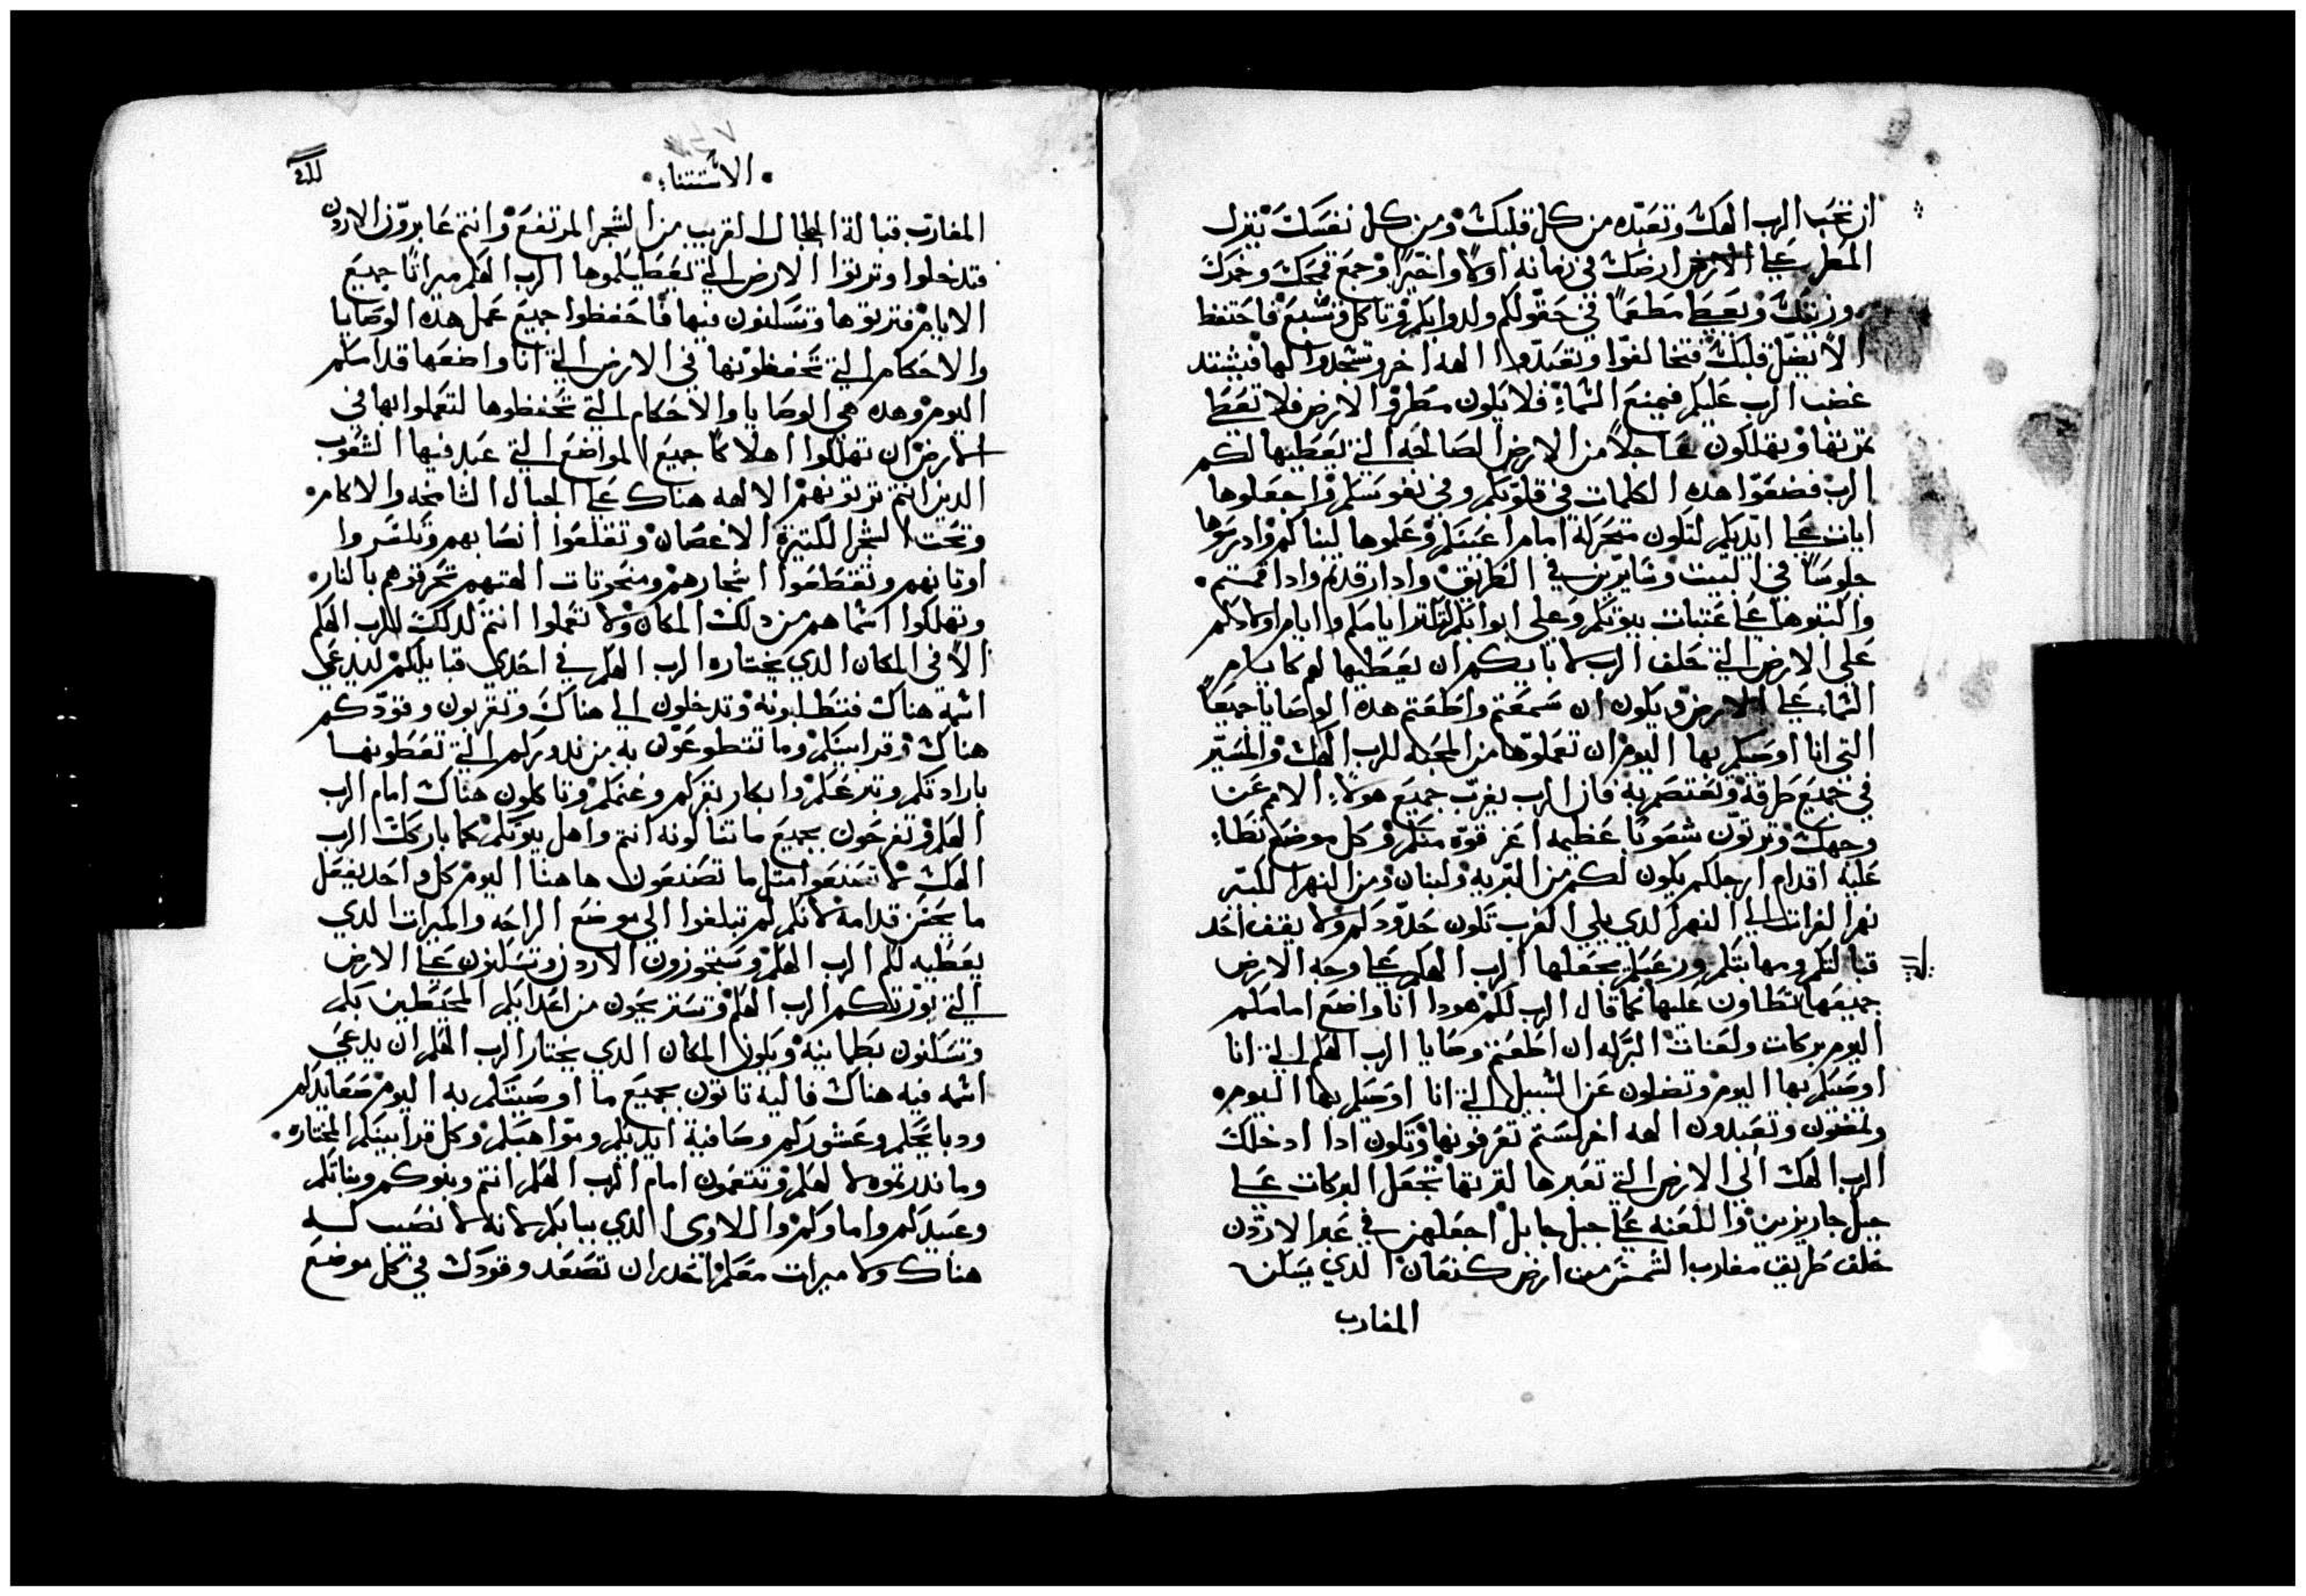 ان تحب الرب الهك وتعبده من كل قلبك ومن كل نفسك ينزل
المطر علي ارضك في زمانه اولا واخيرا وجمع قمحك وخمرك
وزيتك ويعطي مطعما في حقولكم ولدوابكم وتاكل وتشبع فاحتفظ
الا يضل قلبك فتخالفوا وتعبدوا الهه اخر وتسجدوا لها فيشتد
غضب الرب عليكم فيمنع السماء فلا يكون مطر والارض فلا تعطي
ثمرتها وتهلكون عاجلا من الارض الصالحه التي يعطيها لكم
الرب فضعوا هده الكلمات في قلوبكم وفي نفوسكم واجعلوها
ايات علي ايديكم لتكون متحركة امام اعينكم وعلموها لبناكم وادرسوها
جلوسا في البيت وسايرين في الطريق وادا رقدتم وادا قمتم
واكتبوها علي عتبات بيوتكم وعلي ابوابكم لتكثر ايامكم وايام اولادكم
علي الارض التي حلف الرب لابايكم ان يعطيها لهم كايام
السماء علي الارض ويكون ان سمعتم واطعتم هده الوصايا جميعا
التي انا اوصيكم بها اليوم ان تعملوها من المحبه للرب الهك والمسير
في جميع طرقه وتعتصم به فان الرب يغرب جميع هولاء الامم عن
وجهك وترتون شعوبا عظيمه اعز قوه منكم وكل موضع تطاء
عليه اقدام ارجلكم يكون لكم من البريه ولبنان ومن النهر الكبير
نهر الفرات الي النهر الدي يلي الغرب تكون حدودكم ولا يقف احد
قبالتكم ومهابتكم ورعبكم يجعلها الرب الهكم علي وجه الارض
جميعها تطاون عليها كما قال الرب لكم هودا انا واضع امامكم
اليوم بركات ولعنات البركه ان اطعتم وصايا الرب الهكم التي انا
اوصيكم بها اليوم وتضلون عن السبيل التي انا اوصيكم بها اليوم
وتمضون وتعبدون الهه اخر لستم تعرفونها وتكون ادا ادخلك
الرب الهك الي الارض التي تعبرها لترتها تجعل البركات علي
جبل جاريزين واللعنه علي جبل جابل اجعلهن في عبر الاردن
خلف طريق مغارب الشمس من ارض كنعان الدي يسكن
المغارب
الاستتناء
المغارب قبالة الجلجال القريب من الشجر المرتفع وانتم عابرون الاردن
فتدخلوا وترتوا الارض التي يعطيكموها الرب الهكم ميراثا جميع
الايام فترتوها وتسكنون فيها فاحفظوا جميع عمل هده الوصايا
والاحكام التي تحفظونها في الارض التي انا واضعها قدامكم
اليوم وهده هي الوصايا والاحكام التي تحفظوها لتعملوا بها في
الارض ان تهلكوا اهلاكا جميع المواضع التي عبد فيها الشعوب
الدين انتم ترتونهم الالهه هناك علي الجبال الشامخه والاكام
وتحت الشجر الكتيرة الاغصان وتقلعوا انصابهم وتكسروا
اوتانهم وتقتطعوا اشجارهم ومنحوتات الهتهم تحرقوهم بالنار
وتهلكوا اسماهم من دلك المكان ولا تعملوا انتم كدلك للرب الهكم
الا في المكان الدي يختاره الرب الهكم في احدي قبايلكم ليدعي
اسمه هناك فتطلبونه وتدخلون الي هناك وتقربون وقودكم
هناك وقرابينكم وما تتطوعون به من ندوركم التي تعطونها
بارادتكم وتبرعكم وابكار بقركم وغنمكم وتاكلون هناك امام الرب
الهكم وتفرحون بجميع ما تنالونه انتم واهل بيوتكم كما باركك الرب
الهك لا تصنعوا متل ما تصنعون هاهنا اليوم كل واحد يفعل
ما يحسن قدامه لانكم لم تبلغوا الي موضع الراحه والميرات الدي
يعطيه لكم الرب الهكم وستجوزون الاردن وتسكنون علي الارض
التي يورتكم الرب الهكم وتستريحون من اعدايكم المحيطين بكم
وتسكنون بطمانينه ويكون المكان الدي يختار الرب الهكم ان يدعي
اسمه فيه هناك فاليه تاتون بجميع ما اوصيتكم به اليوم صعايدكم
ودبايحكم وعشوركم وصافية ايديكم ومواهبكم وكل قرابينكم المختاره
وما ندرتموه لالهكم وتتنعمون امام الرب الهكم انتم وبنوكم وبناتكم
وعبيدكم واماوكم واللاوي الدي ببابكم لانه لا نصيب له
هناك ولا ميرات معكم احدر ان تصعد وقودك في كل موضع